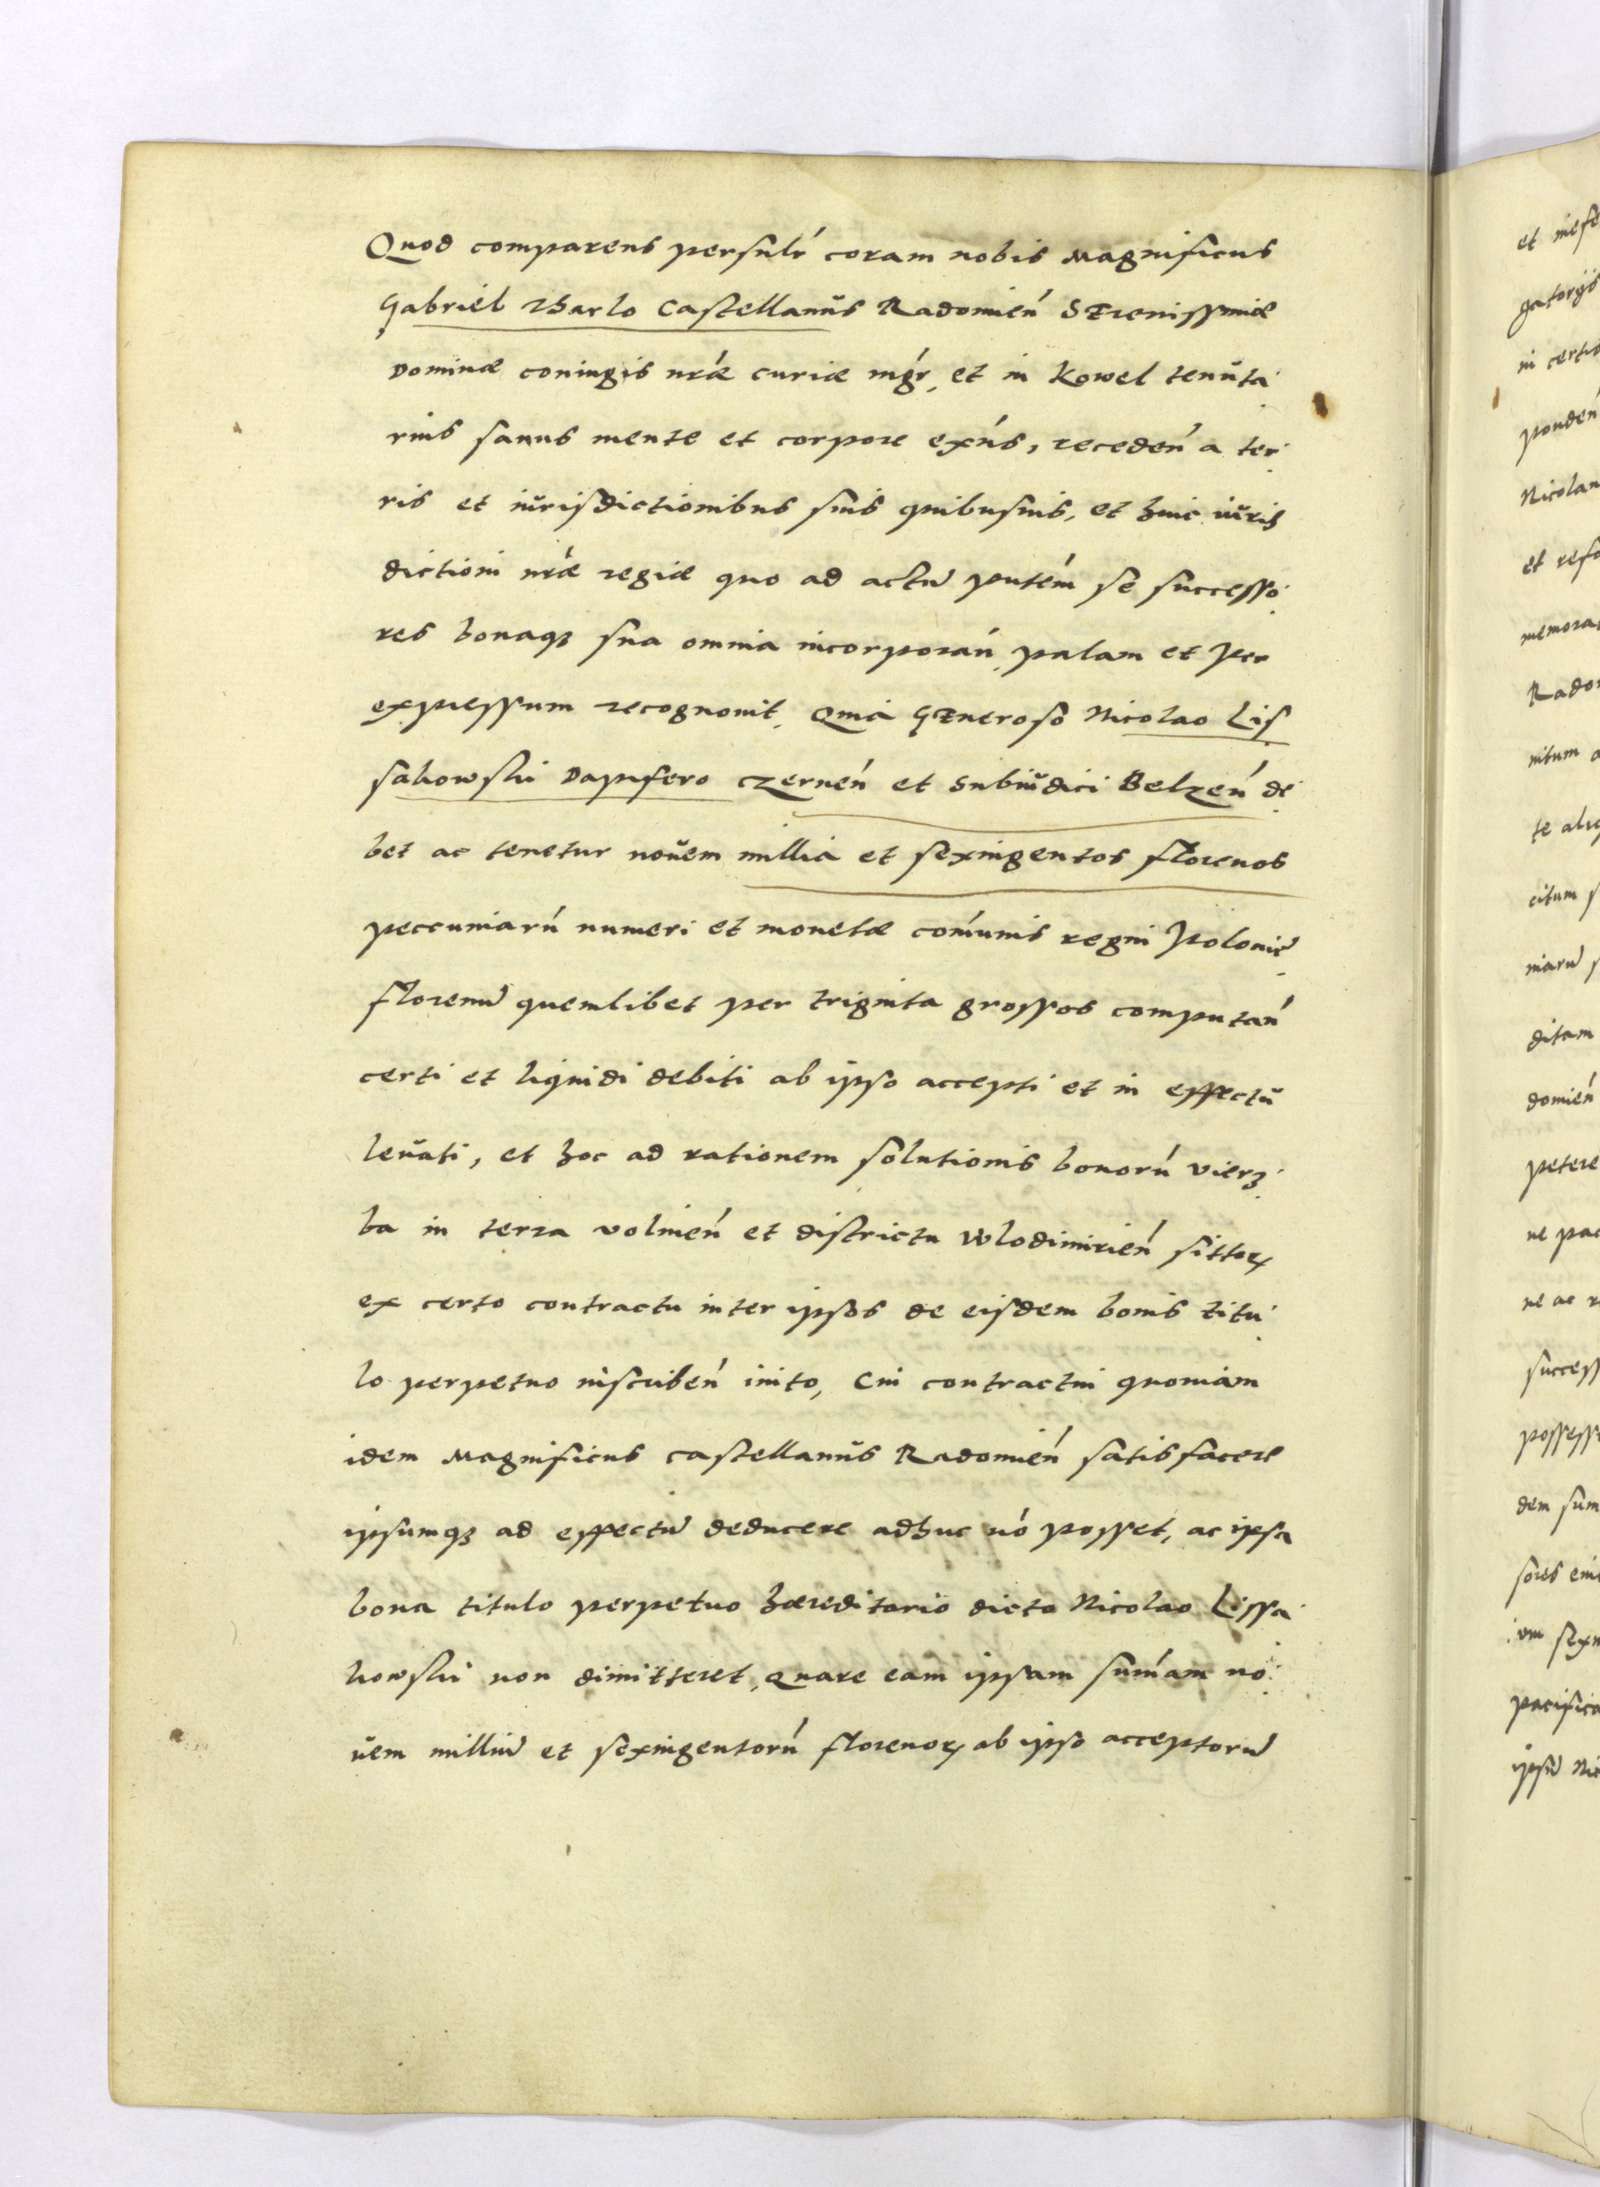 Quod comparens persnlr coram nobis Magnificus
Gabriel Tharlo Castellanus Radomien Serenissimæ
Dominæ coniugis nræ curiæ mgr, et in Kowel tenuta
rius sanus mente et corpore exns, receden a ter
ris et iurisdictionibus suis quibusuis, et huic iuris
dictioni nræ regiæ quo ad actu pntem se successo
res bonaq sua omnia incorporan, palam et per
expressum recognouit, Quia Generoso Nicolao Lis
sakowski Dapifero Czernen et Subiudici Belzen de
bet ac tenetur nouem millia et sexingentos florenos
peccuniaru numeri et monetæ comunis regni Poloniæ
florenu quemlibet per triginta grossos computan
certi et liquidi debiti ab ipso accepti et in effectu
leuati, et hoc ad rationem solutionis bonoru Vierz
ba in terra Volinen et districtu Wlodimirien sittor
ex certo contractu inter ipsos de eisdem bonis titu
lo perpetuo inscriben inito, Cui contractui quoniam
idem Magnificus Castellanus Radomien satisfacere
ipsumq ad effectu deducere adhuc no posset, ac ipsa
bona titulo perpetuo hæreditario dicto Nicolao Lissa
kowski non dimitteret, Quare eam ipsam sumam no
uem milliu et sexingentoru florenor ab ipso acceptoru
et
gatorijs
in certis
ponden
Nicolau
et
memora
nitum a
te
citum
niaru
ditam
domien
petere
ne
ne ac
success
possess
dem sum
sores
um
pacifica
ipsu